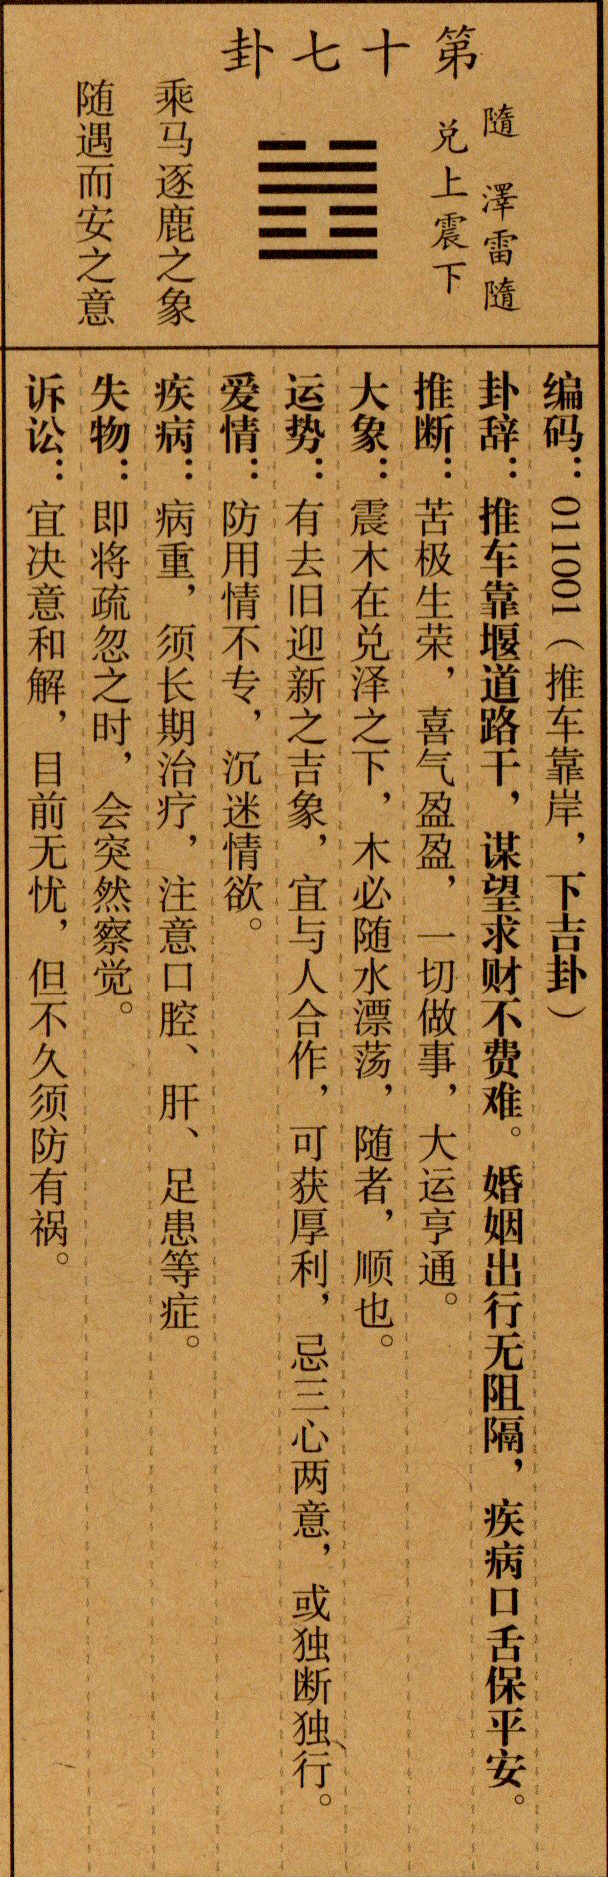 第十七卦
隨 澤雷隨
兑上震下
乘马逐鹿之象
随遇而安之意
编码：011001（推车靠岸，下吉卦）
卦辞：推车靠堰道路干，谋望求财不费难。婚姻出行无阻隔，疾病口舌保平安。
推断：苦极生荣，喜气盈盈，一切做事，大运亨通。
大象：震木在兑泽之下，木必随水漂荡，随者，顺也。
运势：有去旧迎新之吉象，宜与人合作，可获厚利，忌三心两意，或独断独行。
爱情：防用情不专，沉迷情欲。
疾病：病重，须长期治疗，注意口腔、肝、足患等症。
失物：即将疏忽之时，会突然察觉。
诉讼：宜决意和解，目前无忧，但不久须防有祸。